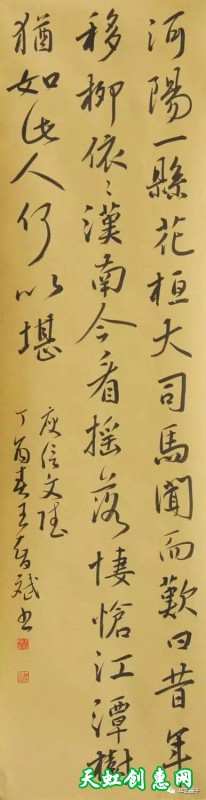 河陽一縣花桓大司馬聞而歎曰昔年
移柳依々漢南今看摇落悽愴江潭樹
猶如此人何以堪
庾信文
丁酉春王斌书
天虹创惠网